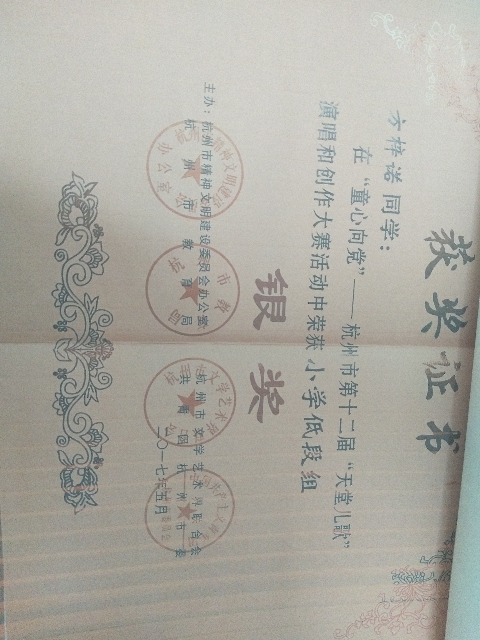 获奖证书
方梓诺 同学：
在“童心向党”——杭州市第十二届“天堂儿歌”
演唱和创作大赛活动中荣获 小学低段组
银奖
主办：杭州市精神文明建设委员会办公室
杭州市教育局
杭州市文学艺术界联合会
共青团杭州市委
二〇一七年五月